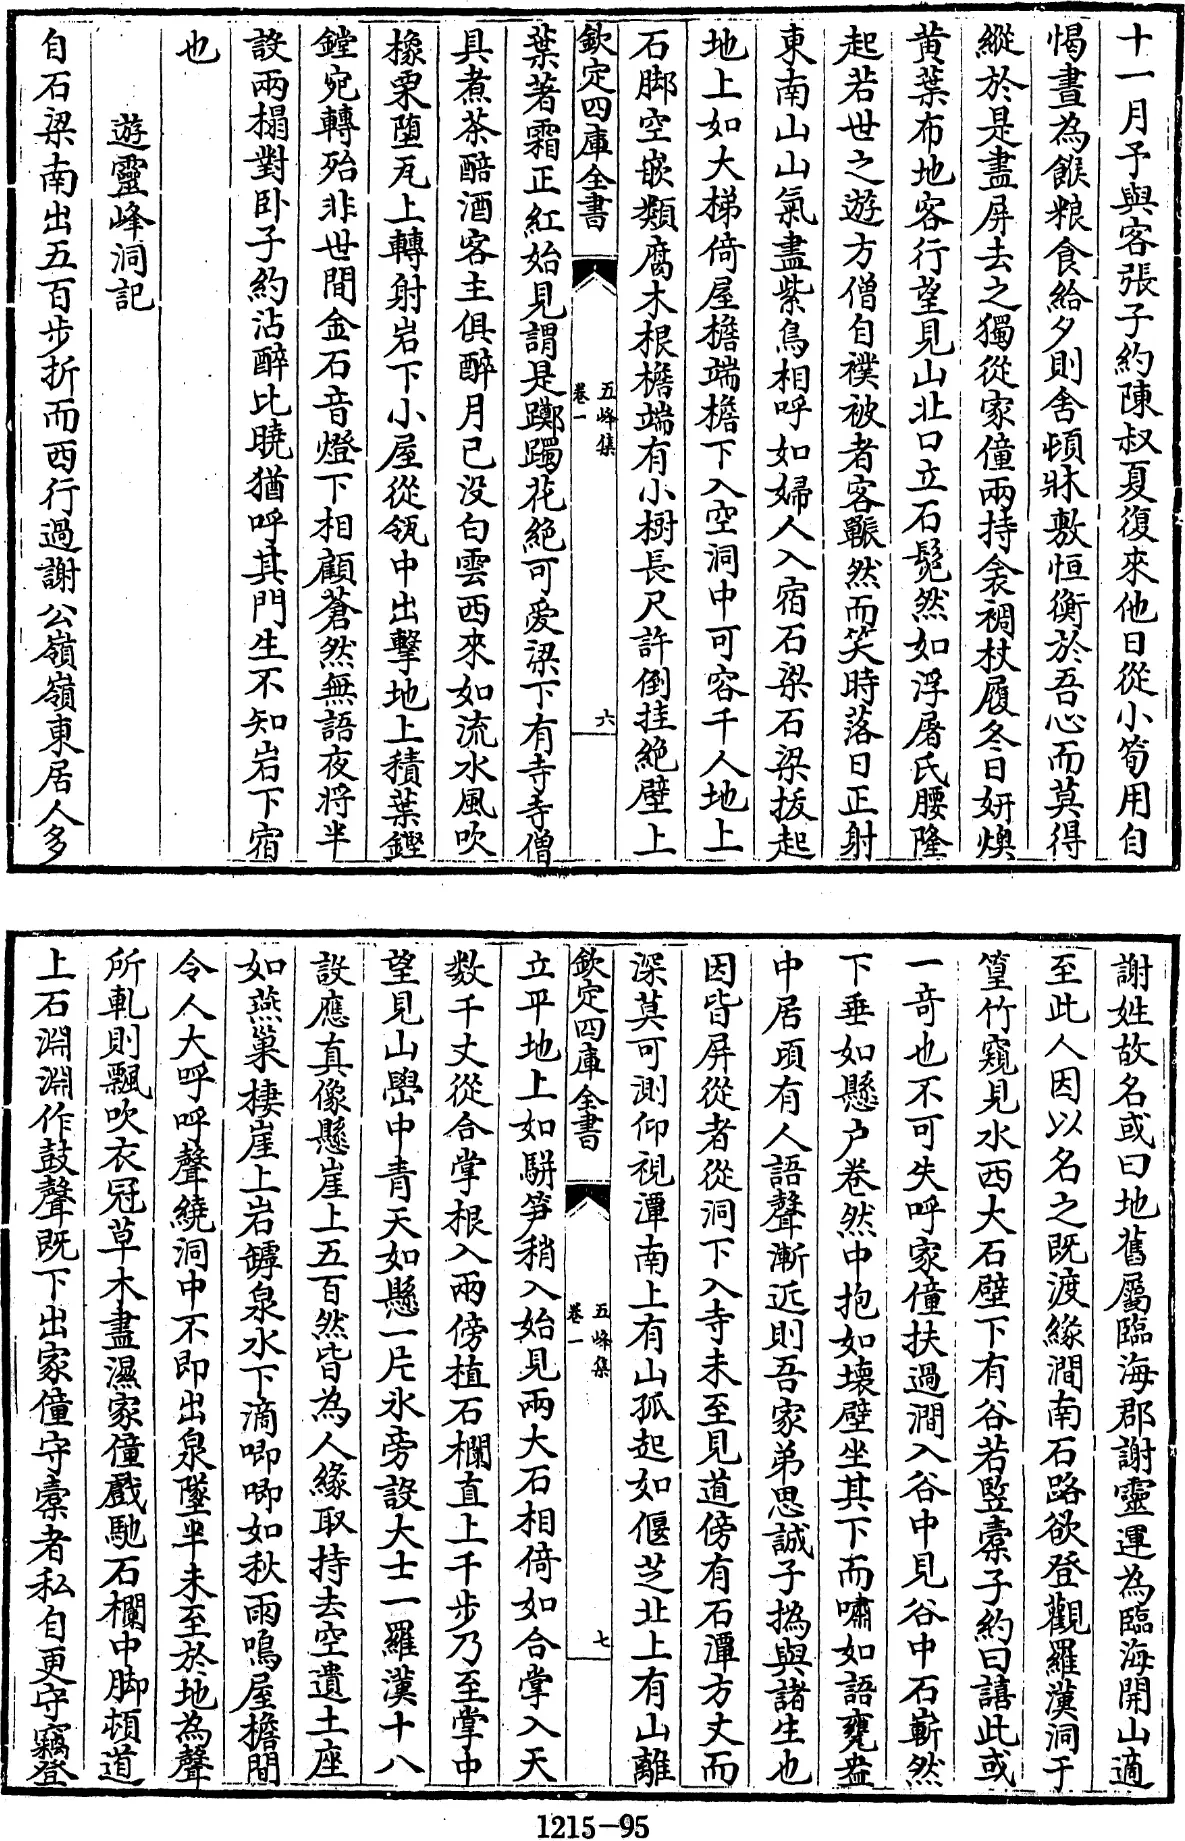 十一月予與客張子約陳叔夏復來他日從小筍用自
愒晝為餱粮食給夕則舍頓牀敷恒衡於吾心而莫得
縱於是盡屏去之獨從家僮兩持衾裯杖履冬日妍燠
黄葉布地客行望見山北口立石髡然如浮屠氏腰隆
起若世之遊方僧自襆被者客冁然而笑時落日正射
東南山山氣盡紫鳥相呼如婦人入宿石梁石梁拔起
地上如大梯倚屋檐端檐下入空洞中可容千人地上
石脚空嵌類腐木根檐端有小樹長尺許倒挂絶壁上
欽定四庫全書
五峰集
卷一
六
葉著霜正紅始見謂是躑躅花絶可爱梁下有寺寺僧
具煮茶醅酒客主俱醉月已没白雲西來如流水風吹
橡栗墮瓦上轉射岩下小屋從瓴中出擊地上積葉鏗
鏜宛轉殆非世間金石音燈下相顧蒼然無語夜將半
設兩榻對卧子約沾醉比曉猶呼其門生不知岩下宿
也
遊靈峰洞記
自石梁南出五百步折而西行過謝公嶺嶺東居人多
謝姓故名或曰地舊屬臨海郡謝靈運為臨海開山適
至此人因以名之既渡緣澗南石路欲登觀羅漢洞于
篁竹窺見水西大石壁下有谷若竪橐子約曰譆此或
一奇也不可失呼家僮扶過澗入谷中見谷中石嶄然
下垂如懸户卷然中抱如壞壁坐其下而嘯如語甕盎
中居頃有人語聲漸近則吾家弟思誠子撝與諸生也
因皆屏從者從洞下入寺未至見道傍有石潭方丈而
深莫可測仰視潭南上有山孤起如偃芝北上有山離
欽定四庫全書
五峰集
卷一
七
立平地上如駢笋稍入始見兩大石相倚如合掌入天
数千丈從合掌根入兩傍植石欄直上千步乃至掌中
望見山罅中青天如懸一片氷旁設大士一羅漢十八
設應真像懸崖上五百然皆為人緣取持去空遺土座
如燕巢棲崖上岩罅泉水下滴唧唧如秋雨鳴屋檐間
令人大呼呼聲繞洞中不即出泉墜半未至於地為聲
所軋則飄吹衣冠草木盡濕家僮戲馳石欄中脚頓道
上石淵淵作鼓聲既下出家僮守橐者私自更守竊登
1215-95